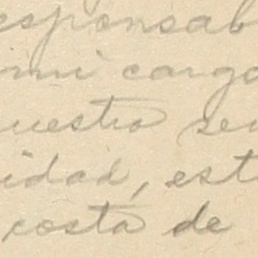 esponsab
mi cargo
uestro se
idad, est
costa de